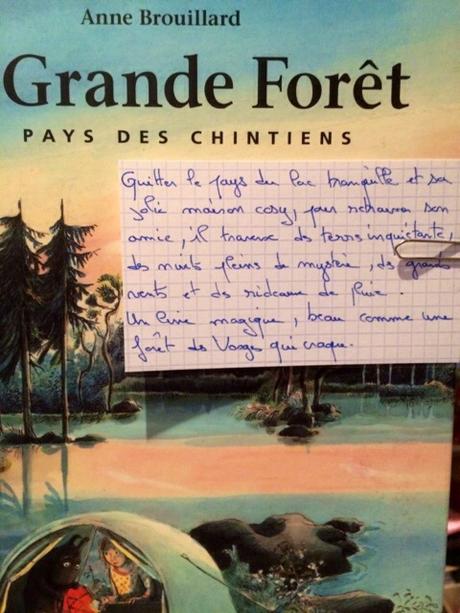 Anne Brouillard
Grande Forêt
PAYS DES CHINTIENS
Quitter le pays du lac tranquille et sa
jolie maison cosy, pour retrouver son
amie, il traverse des terres inquiétantes,
des nuits pleines de mystère, des grands
vents et des rideaux de pluie.
Un livre magique, beau comme une
forêt des Vosges qui craque.